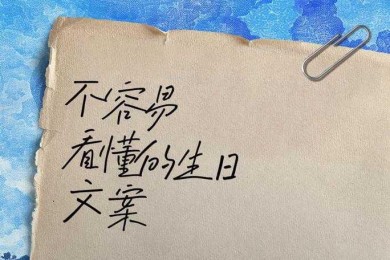 不容易
看懂的生日
文案